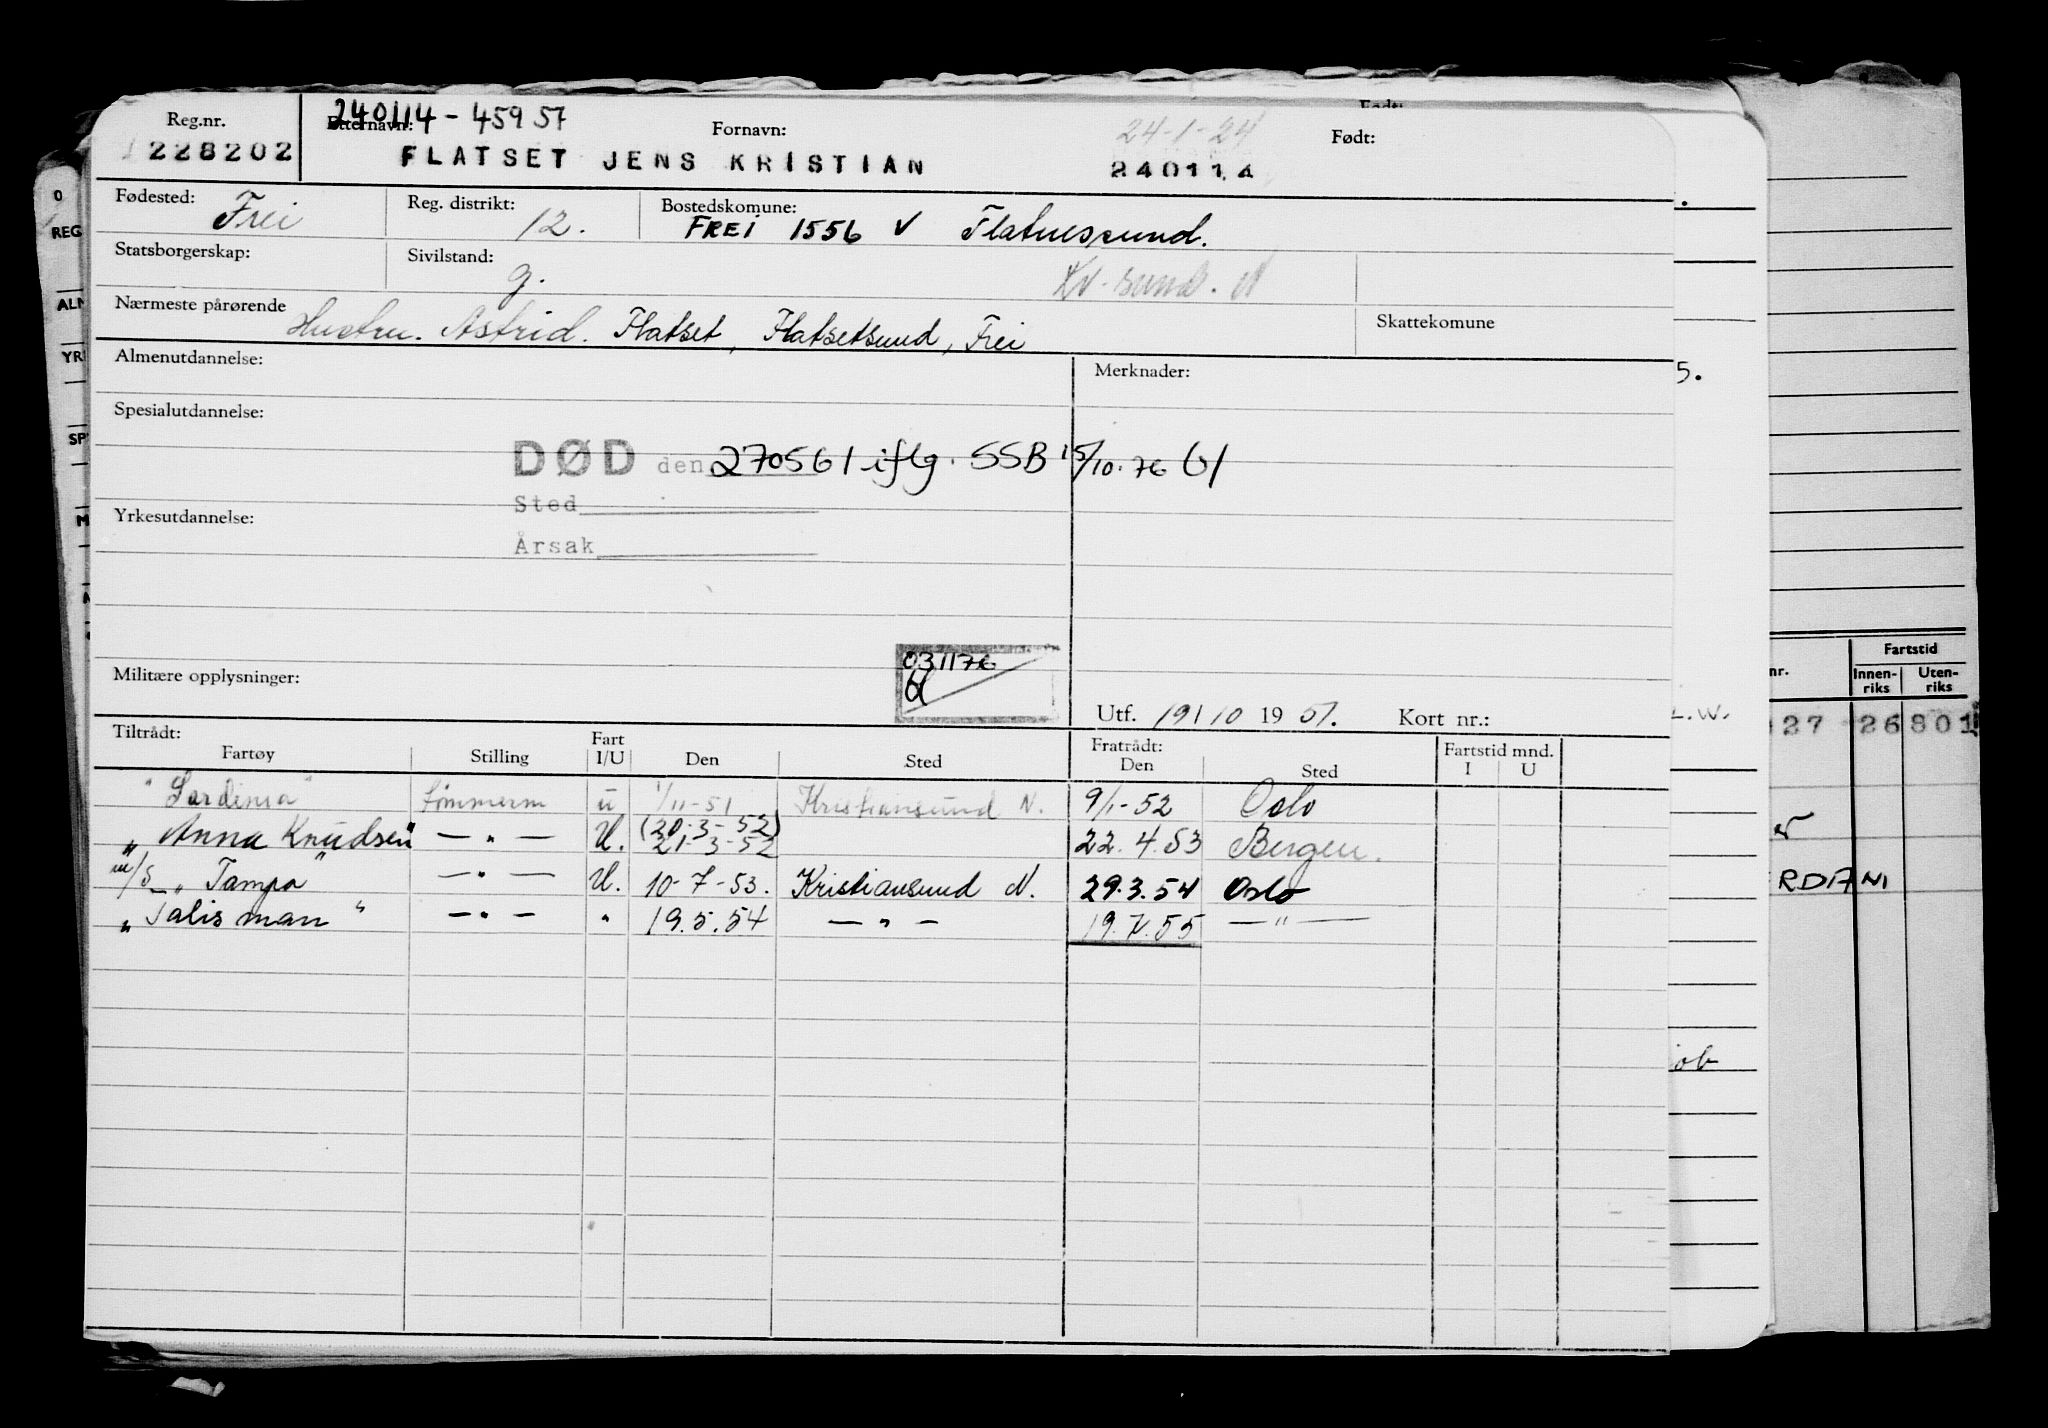 240114 - 45957
Reg.nr. Etternavn: Fornavn: 24-1-24 Født:
1228202 FLATSET JENS KRISTIAN 240114
Fødested: Frei Reg. distrikt: 12. Bostedskomune: FREI 1556 V
Statsborgerskap: Sivilstand: g. Kr. sund. N
Nærmeste pårørende Hustru. Astrid. Flatset, Flatsetsund, Frei Skattekomune
Almenutdannelse: Merknader:
Spesialutdannelse:
DØD den 270561 iflg. SSB 15/10.76
Sted
Yrkesutdannelse:
Årsak
031176
Militære opplysninger:
Utf. 19/10 1951. Kort nr.:
Tiltrådt: Fratrådt:
Fartøy Stilling Fart I/U Den Sted Den Sted Fartstid mnd. I U
"Sardinia" tømmerm u 1/11-51 Kristiansund N. 9/1-52 Oslo
(20-3-52)
"Anna Knudsen" — " — U. 21-3-52 22.4.53 Bergen.
m/s "Tampa" — " — U. 10-7-53. Kristiansund N. 29.3.54 Oslo
"Talisman" — " — " 19.5.54 — " — 19.7.55 — " —
0
REG
ALM
YR
SP
M
5.
L.W.
ob
nr. Fartstid
Innen-riks Uten-riks
27 26 801
RDANI